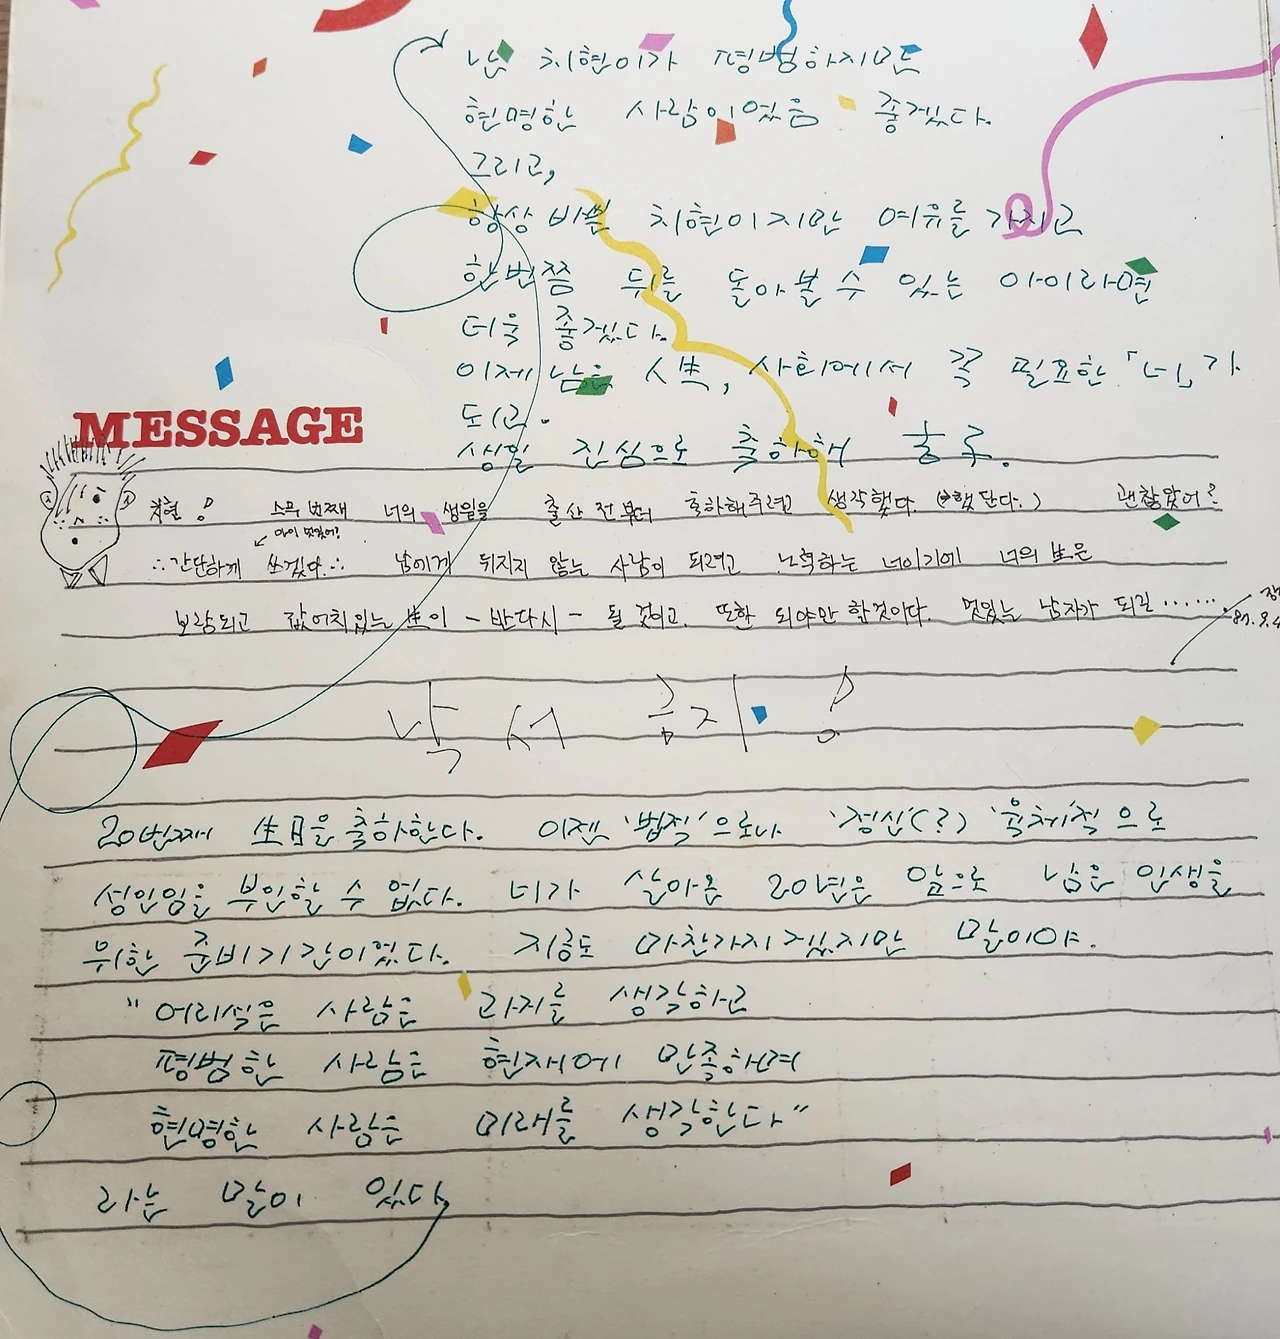 난 치현이가 평범하지만
현명한 사람이었음 좋겠다.
그리고,
항상 바쁜 치현이지만 여유를 가지고
한번쯤 뒤를 돌아볼 수 있는 아이라면
더욱 좋겠다.
이제 남은 人生, 사회에서 꼭 필요한 「너」가
되고.
생일 진심으로 축하해
MESSAGE
치현! 스무 번째 너의 생일을 출산 전부터 축하해주려고 생각했다. (→했단다.) 괜찮았어?
아이 멋있어?
∴간단하게 쓰겠다.∴ 남에게 뒤지지 않는 사람이 되려고 노력하는 너이기에 너의 生은
보람되고 값어치있는 生이 - 반다시 - 될 것이고, 또한 되야만 할것이다. 멋있는 남자가 되길 ……
낙서 금지!
20번째 生日을 축하한다. 이젠 '법적'으로나 '정신'(?) '육체'적으로
성인임을 부인할 수 없다. 너가 살아온 20년은 앞으로 남은 인생을
위한 준비기간이었다. 지금도 마찬가지겠지만 말이야.
"어리석은 사람은 과거를 생각하고
평범한 사람은 현재에 만족하며
현명한 사람은 미래를 생각한다"
라는 말이 있다,